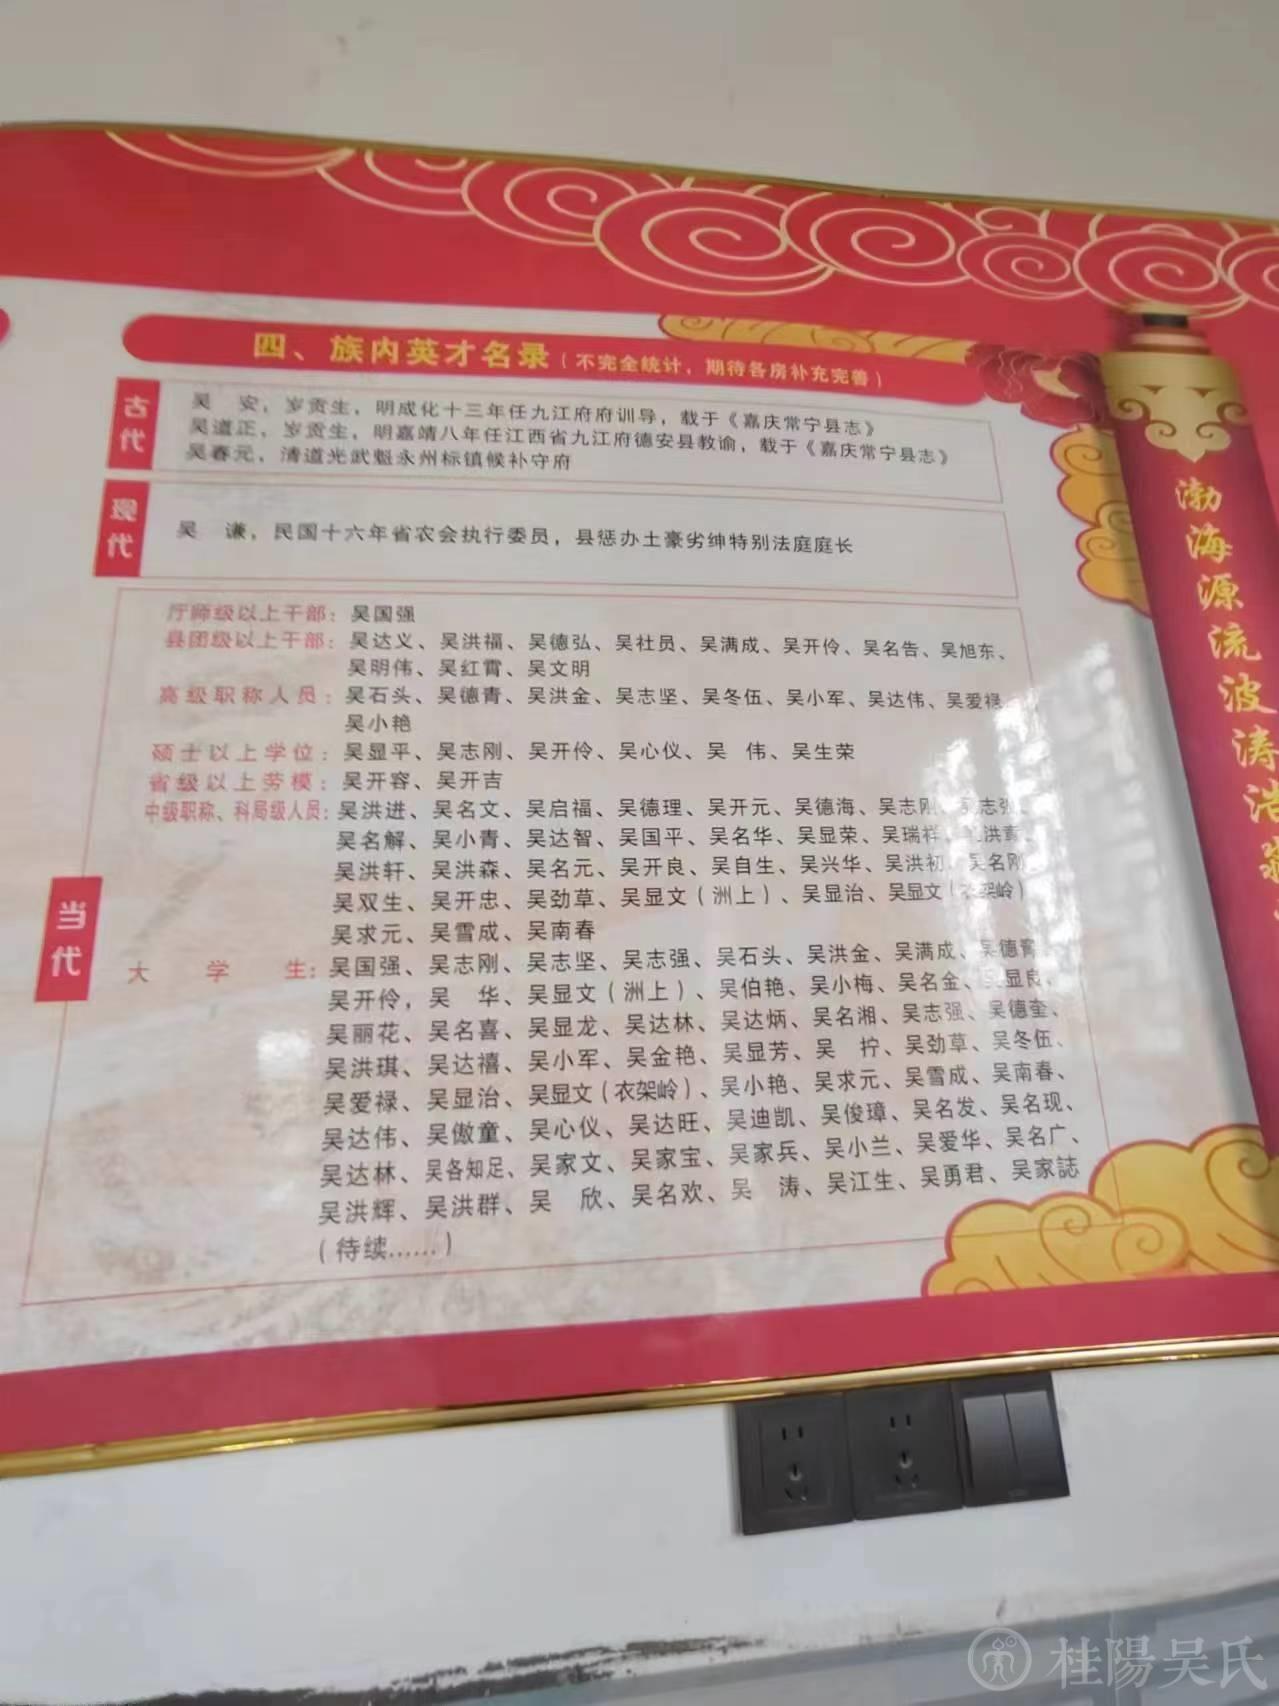 四、族内英才名录（不完全统计，期待各房补充完善）
古代
吴　安，岁贡生，明成化十三年任九江府府训导，载于《嘉庆常宁县志》
吴道正，岁贡生，明嘉靖八年任江西省九江府德安县教谕，载于《嘉庆常宁县志》
吴春元，清道光武魁永州标镇候补守府
现代
吴　谦，民国十六年省农会执行委员，县惩办土豪劣绅特别法庭庭长
当代
厅师级以上干部：吴国强
县团级以上干部：吴达义、吴洪福、吴德弘、吴社员、吴满成、吴开伶、吴名告、吴旭东、
吴明伟、吴红霄、吴文明
高级职称人员：吴石头、吴德青、吴洪金、吴志坚、吴冬伍、吴小军、吴达伟、吴爱禄、
吴小艳
硕士以上学位：吴显平、吴志刚、吴开伶、吴心仪、吴　伟、吴生荣
省级以上劳模：吴开容、吴开吉
中级职称、科局级人员：吴洪进、吴名文、吴启福、吴德理、吴开元、吴德海、吴志刚、吴志强、
吴名解、吴小青、吴达智、吴国平、吴名华、吴显荣、吴瑞祥、
吴洪轩、吴洪森、吴名元、吴开良、吴自生、吴兴华、吴洪初、吴名刚、
吴双生、吴开忠、吴劲草、吴显文（洲上）、吴显治、吴显文（衣架岭）
吴求元、吴雪成、吴南春
大学生：吴国强、吴志刚、吴志坚、吴志强、吴石头、吴洪金、吴满成、吴德青、
吴开伶，吴　华、吴显文（洲上）、吴伯艳、吴小梅、吴名金、吴显良、
吴丽花、吴名喜、吴显龙、吴达林、吴达炳、吴名湘、吴志强、吴德奎、
吴洪琪、吴达禧、吴小军、吴金艳、吴显芳、吴　拧、吴劲草、吴冬伍、
吴爱禄、吴显治、吴显文（衣架岭）、吴小艳、吴求元、吴雪成、吴南春、
吴达伟、吴傲童、吴心仪、吴达旺、吴迪凯、吴俊璋、吴名发、吴名现、
吴达林、吴各知足、吴家文、吴家宝、吴家兵、吴小兰、吴爱华、吴名广、
吴洪辉、吴洪群、吴　欣、吴名欢、吴　涛、吴江生、吴勇君、吴家誌
（待续……）
渤海源流波涛浩
桂陽吴氏